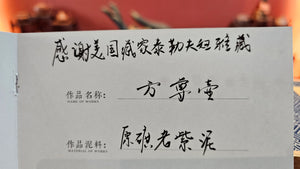 感谢美国臧家泰勒夫妇雅藏
作品名称：
方尊壶
NAME OF WORKS
作品泥料：
原矿老紫泥
MATERIAL OF WORKS